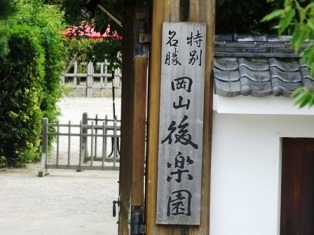 特別
名勝
岡山後楽園